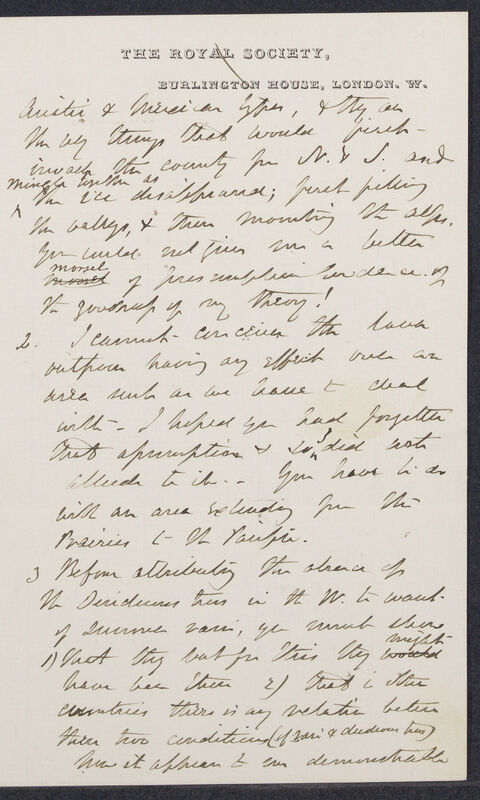 THE ROYAL SOCIETY,
BURLINGTON HOUSE, LONDON. W.
& American types, & they are
the very things that would first
invade the country fm N. & S. and
mingle together as
the ice disappeared; first filling
the valleys, & then mounting the alps.
You could not give me a better
morsel
morsel of presumptive evidence of
the goodness of my theory!
2. I cannot conceive the lava
outpour having any effect over an
area such as we have to deal
with - I hoped you had forgotten
that assumption & so I did not
allude to it. - You have to do
with an area extending from the
Prairies to the Pacific.
3 Before attributing the absence of
the Deciduous trees in the W. to want
of summer rain, you must show
1) that they but for this they might
would
have been there 2) that in other
countries there is any relation between
these two conditions (of rain & deciduous trees)
Now it appears to me demonstrable